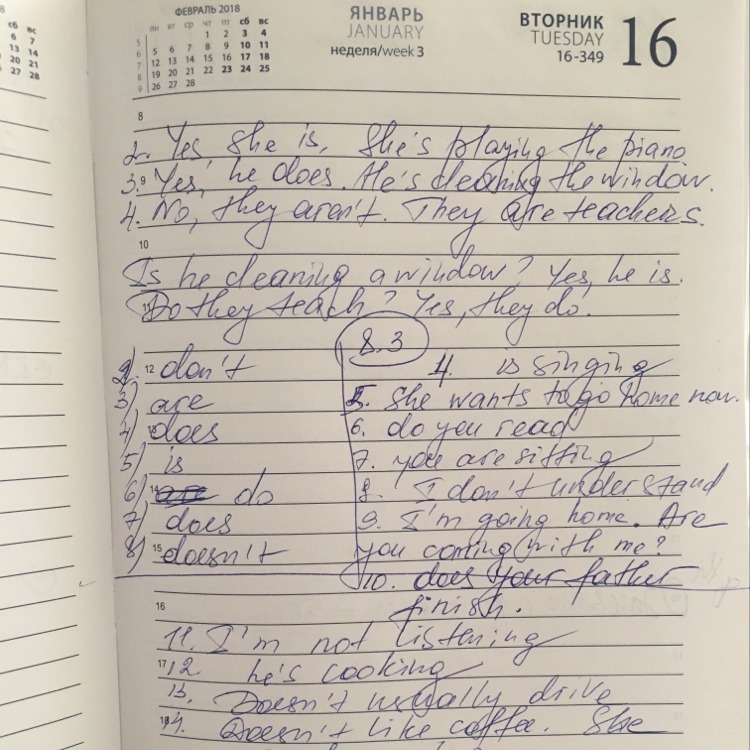 сб вс
6 7
13 14
20 21
27 28
ФЕВРАЛЬ 2018
пн вт ср чт пт сб вс
5 1 2 3 4
6 5 6 7 8 9 10 11
7 12 13 14 15 16 17 18
8 19 20 21 22 23 24 25
9 26 27 28
ЯНВАРЬ
JANUARY
неделя/week 3
ВТОРНИК
TUESDAY
16-349
16
8
2. Yes, she is. She's playing the piano
3. 9 Yes, he does. He's cleaning the window.
4. No, they aren't. They are teachers.
10
Is he cleaning a window? Yes, he is.
11 Do they teach? Yes, they do.
8.3
2) 12 don't
3) are
4) does
5) is
6) 14 do
7) does
8) 15 doesn't
4. is singing
5. She wants to go home now.
6. do you read
7. you are sitting
8. I don't understand
9. I'm going home. Are
you coming with me?
10. does your father
finish.
16
11. I'm not listening
17 12. he's cooking
13. Doesn't usually drive
18 14. Doesn't like coffee. She